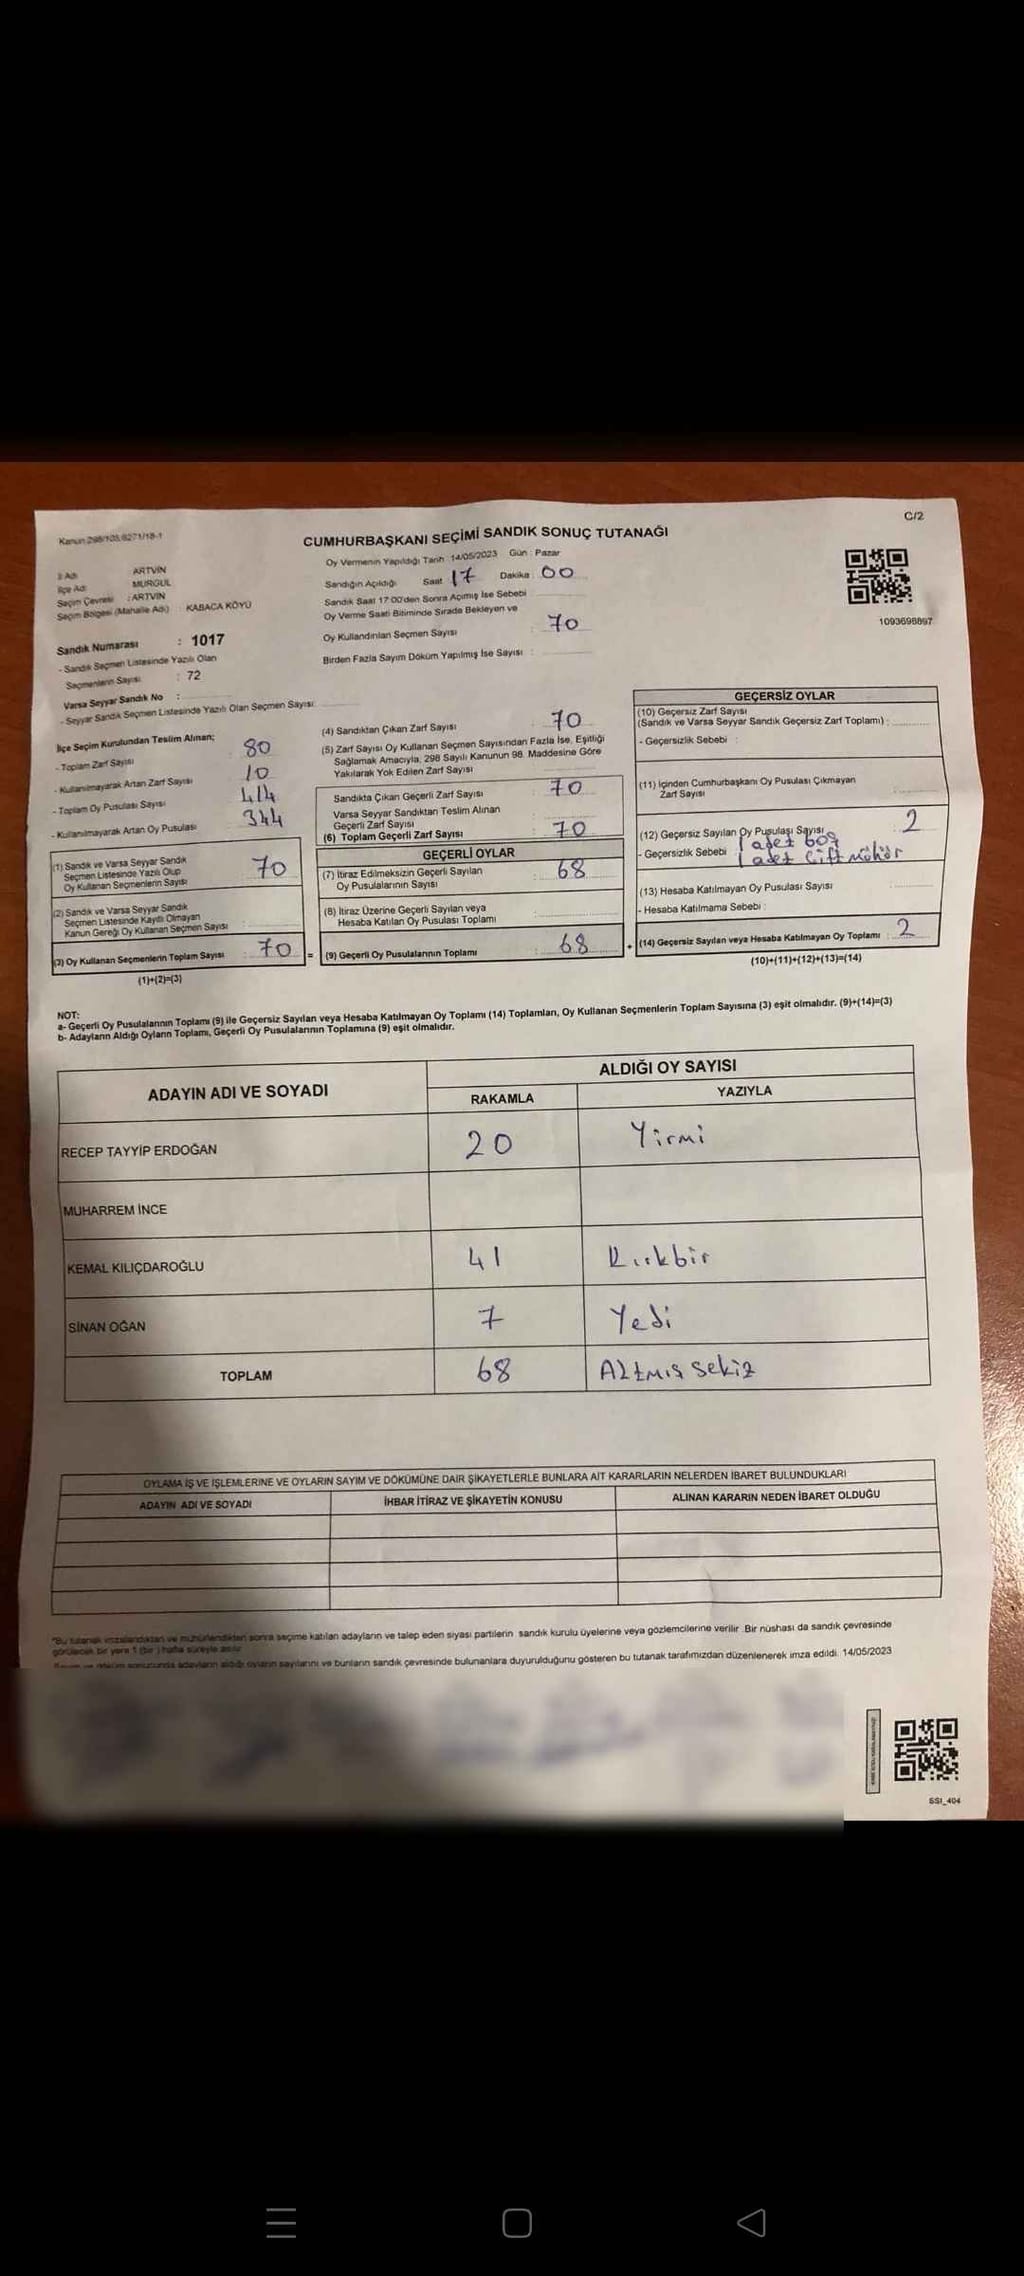 C/2
Kanun:298/105,6271/18-1
CUMHURBAŞKANI SEÇİMİ SANDIK SONUÇ TUTANAĞI
İl Adı ARTVİN
İlçe Adı MURGUL
Seçim Çevresi : ARTVİN
Seçim Bölgesi (Mahalle Adı) : KABACA KÖYÜ
Sandık Numarası : 1017
- Sandık Seçmen Listesinde Yazılı Olan
Seçmenlerin Sayısı : 72
Varsa Seyyar Sandık No :
- Seyyar Sandık Seçmen Listesinde Yazılı Olan Seçmen Sayısı:
Oy Vermenin Yapıldığı Tarih 14/05/2023 Gün : Pazar
Sandığın Açıldığı Saat 17 Dakika : 00
Sandık Saat 17:00'den Sonra Açılmış İse Sebebi
Oy Verme Saati Bitiminde Sırada Bekleyen ve
Oy Kullandırılan Seçmen Sayısı : 70
Birden Fazla Sayım Döküm Yapılmış İse Sayısı :
1093698897
İlçe Seçim Kurulundan Teslim Alınan;
- Toplam Zarf Sayısı 80
- Kullanılmayarak Artan Zarf Sayısı 10
- Toplam Oy Pusulası Sayısı 414
- Kullanılmayarak Artan Oy Pusulası 344
(1) Sandık ve Varsa Seyyar Sandık
Seçmen Listesinde Yazılı Olup
Oy Kullanan Seçmenlerin Sayısı 70
(2) Sandık ve Varsa Seyyar Sandık
Seçmen Listesinde Kayıtlı Olmayan
Kanun Gereği Oy Kullanan Seçmen Sayısı :
(3) Oy Kullanan Seçmenlerin Toplam Sayısı : 70
(1)+(2)=(3)
(4) Sandıktan Çıkan Zarf Sayısı : 70
(5) Zarf Sayısı Oy Kullanan Seçmen Sayısından Fazla İse, Eşitliği
Sağlamak Amacıyla, 298 Sayılı Kanunun 98. Maddesine Göre
Yakılarak Yok Edilen Zarf Sayısı
Sandıkta Çıkan Geçerli Zarf Sayısı : 70
Varsa Seyyar Sandıktan Teslim Alınan
Geçerli Zarf Sayısı
(6) Toplam Geçerli Zarf Sayısı : 70
GEÇERLİ OYLAR
(7) İtiraz Edilmeksizin Geçerli Sayılan
Oy Pusulalarının Sayısı : 68
(8) İtiraz Üzerine Geçerli Sayılan veya
Hesaba Katılan Oy Pusulası Toplamı :
= (9) Geçerli Oy Pusulalarının Toplamı : 68 +
GEÇERSİZ OYLAR
(10) Geçersiz Zarf Sayısı
(Sandık ve Varsa Seyyar Sandık Geçersiz Zarf Toplamı) :
- Geçersizlik Sebebi :
(11) İçinden Cumhurbaşkanı Oy Pusulası Çıkmayan
Zarf Sayısı
(12) Geçersiz Sayılan Oy Pusulası Sayısı 2
- Geçersizlik Sebebi 1 adet boş
1 adet Çift mühür
(13) Hesaba Katılmayan Oy Pusulası Sayısı
- Hesaba Katılmama Sebebi :
(14) Geçersiz Sayılan veya Hesaba Katılmayan Oy Toplamı : 2
(10)+(11)+(12)+(13)=(14)
NOT:
a- Geçerli Oy Pusulalarının Toplamı (9) ile Geçersiz Sayılan veya Hesaba Katılmayan Oy Toplamı (14) Toplamları, Oy Kullanan Seçmenlerin Toplam Sayısına (3) eşit olmalıdır. (9)+(14)=(3)
b- Adayların Aldığı Oyların Toplamı, Geçerli Oy Pusulalarının Toplamına (9) eşit olmalıdır.
ADAYIN ADI VE SOYADI
ALDIĞI OY SAYISI
RAKAMLA YAZIYLA
RECEP TAYYİP ERDOĞAN 20 Yirmi
MUHARREM İNCE
KEMAL KILIÇDAROĞLU 41 Kırkbir
SİNAN OĞAN 7 Yedi
TOPLAM 68 Altmış sekiz
OYLAMA İŞ VE İŞLEMLERİNE VE OYLARIN SAYIM VE DÖKÜMÜNE DAİR ŞİKAYETLERLE BUNLARA AİT KARARLARIN NELERDEN İBARET BULUNDUKLARI
ADAYIN ADI VE SOYADI İHBAR İTİRAZ VE ŞİKAYETİN KONUSU ALINAN KARARIN NEDEN İBARET OLDUĞU
*Bu tutanak imzalandıktan ve mühürlendikten sonra seçime katılan adayların ve talep eden siyasi partilerin sandık kurulu üyelerine veya gözlemcilerine verilir. Bir nüshası da sandık çevresinde
görülecek bir yere 1 (bir) hafta süreyle asılır.
sonucunda adayların aldığı oyların sayılarını ve bunların sandık çevresinde bulunanlara duyurulduğunu gösteren bu tutanak tarafımızdan düzenlenerek imza edildi. 14/05/2023
SSI_404